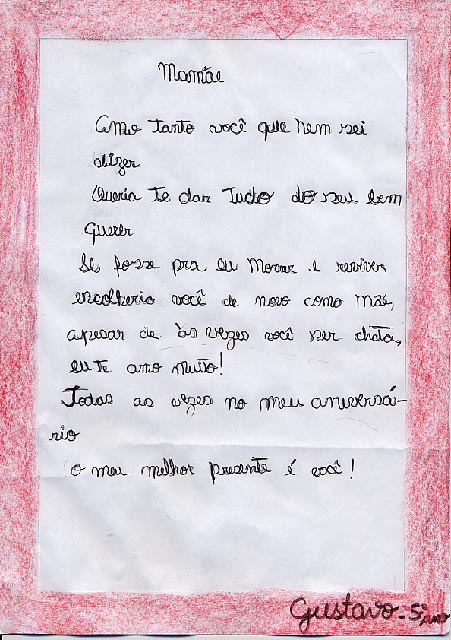 Mamãe
Amo tanto você que nem sei
dizer
Queria te dar tudo do seu bem
querer
Se fosse pra eu morrer e reviver
escolheria você de novo como mãe,
apesar de às vezes você ser chata,
eu te amo muito!
Todas as vezes no meu aniversá-
rio
o meu melhor presente é você!
Gustavo - 5º